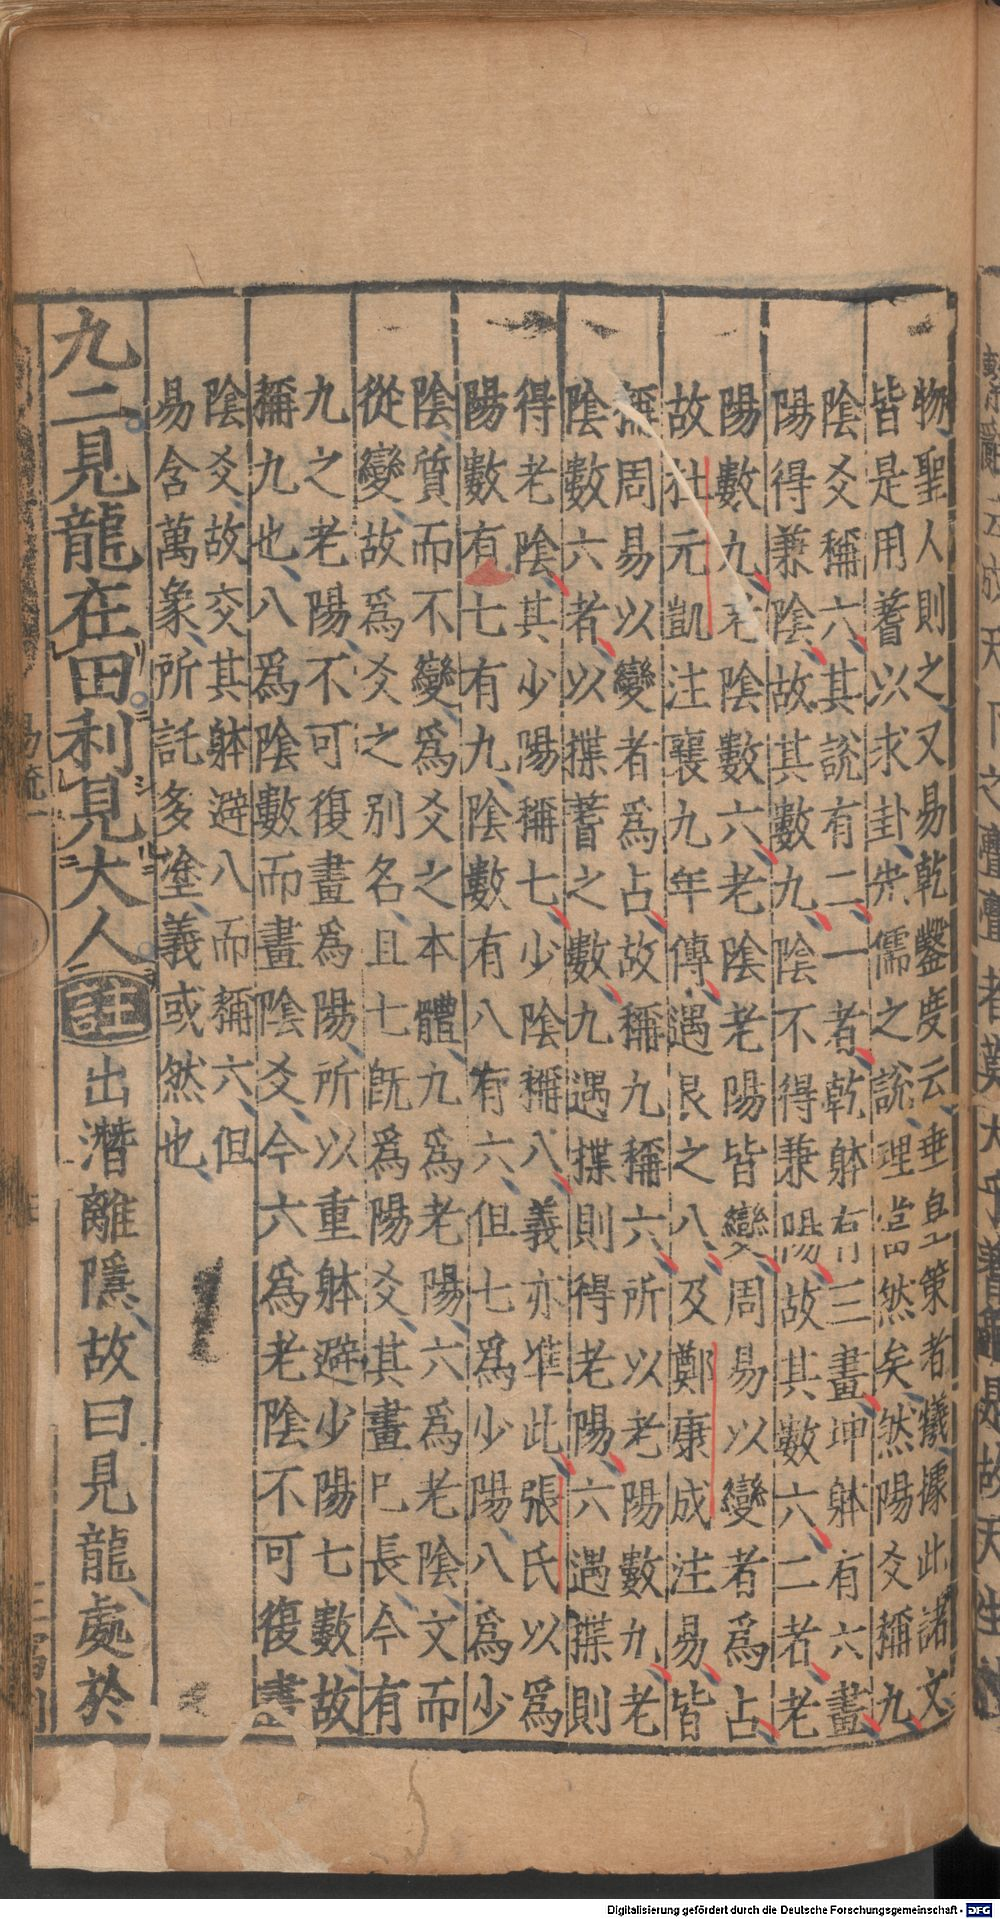 物聖人則之又易乾鑿度云垂皇策者犧據此諸文
皆是用蓍以求卦先儒之說理當然矣然陽爻稱九
陰爻稱六其說有二一者乾躰有三畫坤躰有六畫
陽得兼陰故其數九陰不得兼陽故其數六二者老
陽數九老陰數六老陰老陽皆變周易以變者為占
故杜元凱注襄九年傳遇艮之八及鄭康成注易皆
稱周易以變者為占故稱九稱六所以老陽數九老
陰數六者以揲蓍之數九遇揲則得老陽六遇揲則
得老陰其少陽稱七少陰稱八義亦准此張氏以為
陽數有七有九陰數有八有六但七為少陽八為少
陰質而不變為爻之本體九為老陽六為老陰文而
從變故為爻之別名且七既為陽爻其畫已長今有
九之老陽不可復畫為陽所以重躰避少陽七數故
稱九也八為陰數而畫陰爻今六為老陰不可復畫
陰爻故交其躰避八而稱六但
易含萬象所託多塗義或然也
九二見龍在田利見大人註出潛離隱故曰見龍處於